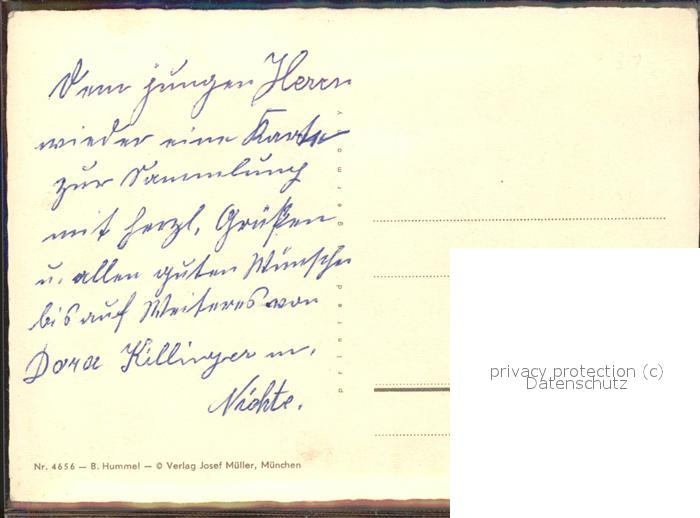 Dem jungen Herrn
wieder eine Karte
zur Sammlung
mit herzl. Grüßen
u. allen guten Wünschen
bis auf Weiteres von
Dora Killinger u.
Nichte.
Nr. 4656 — B. Hummel — © Verlag Josef Müller, München
printed germany
privacy protection (c)
Datenschutz